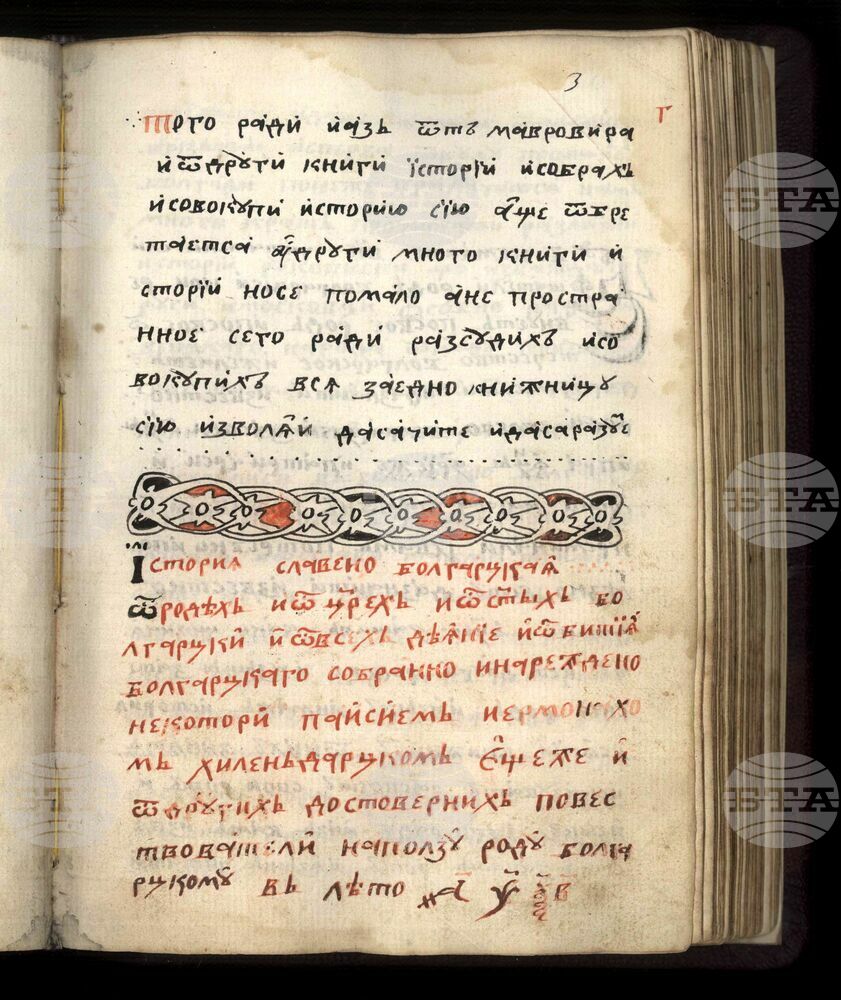 3
г
Того ради и азь ѿтъ мавровира
и ѿ други книги їсторїй и собрахъ
и совокупи историю сїю аще ѿбре
таетса и други много книги и
сторїй но се помало а не простра
нное сего ради разсудихъ и со
вокупихъ вся заедно книжницу
сїю изволяй да са чите и да са разуе
Істория славено болгарцкая
ѿ родѣхъ и ѿ црехъ и ѿ стыхъ бо
лгарцки и ѿ всехъ дѣяние и ѿ битїя
болгарцкаго собранно и нареждено
некотори паисїемь иермонахо
мь хиленьдарцкомъ ещеже и
ѿ другихъ достовернихъ повес
твователи на ползу роду болга
рцкому въ лѣто
БТА
БТА
БТА
БТА
БТА
БТА